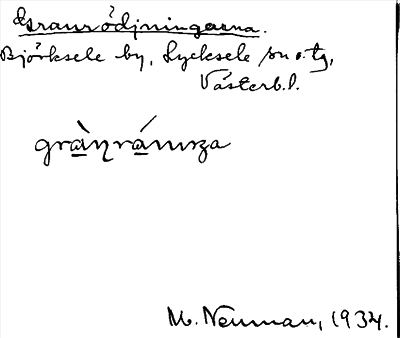 Granrödjningarna.
Björksele by, Lycksele sn o. tg,
Västerb. l.
grànrámɩza
M. Neuman, 1934.